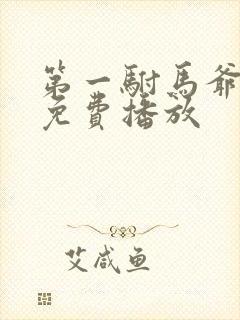 第一駙馬爺
免費播放
艾咸鱼